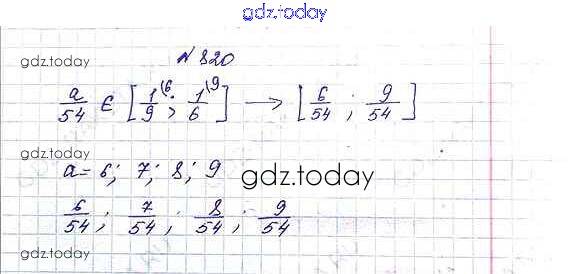 gdz.today
gdz.today
N 820
a/54 ∈ [1/9 (6; 1/6 (9] → [6/54; 9/54]
gdz.today
a = 6; 7; 8; 9
gdz.today
6/54; 7/54; 8/54; 9/54
gdz.today